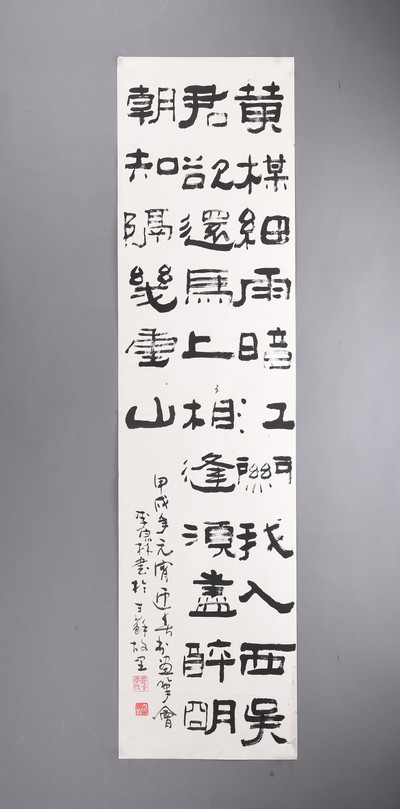 黄楳細雨暗江關我入西吳
君欲還馬上相逢須盡醉明
朝知隔幾重山
甲戌年元宵迎春书畫筆會
李林書於三蘇故里